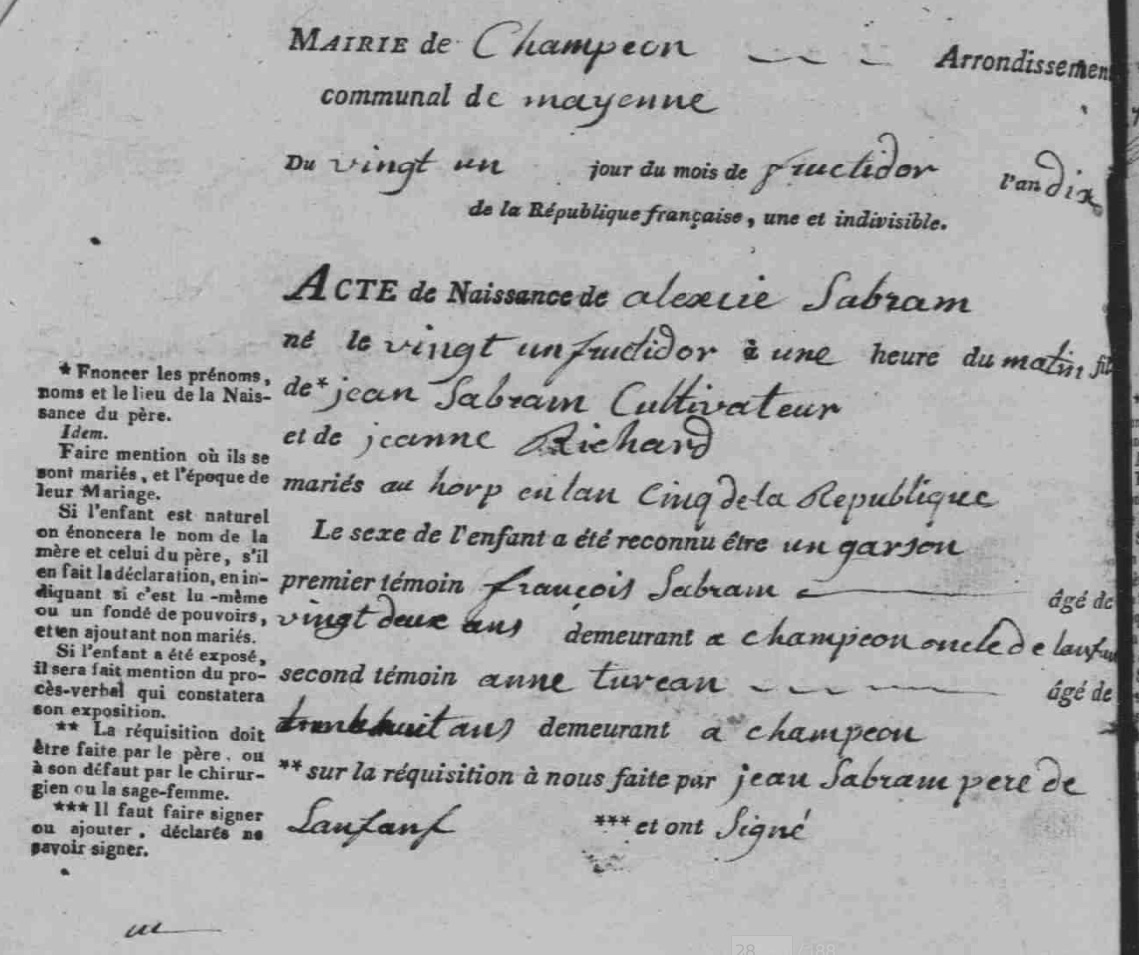 MAIRIE de Champeon Arrondissement
communal de mayenne
Du vingt un jour du mois de fructidor l'an dix
de la République française, une et indivisible.
ACTE de Naissance de alexcie Sabram
né le vingt un fructidor à une heure du matin fil
de* jean Sabram Cultivateur
et de jeanne Richard
mariés au horp en lan Cinq de la Republique
Le sexe de l'enfant a été reconnu être un garson
premier témoin françois Sabram âgé de
vingt deux ans demeurant a champeon oncle de lanfan
second témoin anne tureau âgé de
huit ans demeurant a champeon
** sur la réquisition à nous faite par jean Sabram pere de
Lanfanf *** et ont Signé
* Enoncer les prénoms,
noms et le lieu de la Nais-
sance du père.
Idem.
Faire mention où ils se
sont mariés, et l'époque de
leur Mariage.
Si l'enfant est naturel
on énoncera le nom de la
mère et celui du père, s'il
en fait la déclaration, en in-
diquant si c'est lu -même
ou un fondé de pouvoirs,
et en ajoutant non mariés.
Si l'enfant a été exposé,
il sera fait mention du pro-
cès-verbal qui constatera
son exposition.
** La réquisition doit
être faite par le père, ou
à son défaut par le chirur-
gien ou la sage-femme.
*** Il faut faire signer
ou ajouter, déclarés ne
savoir signer.
28 / 188